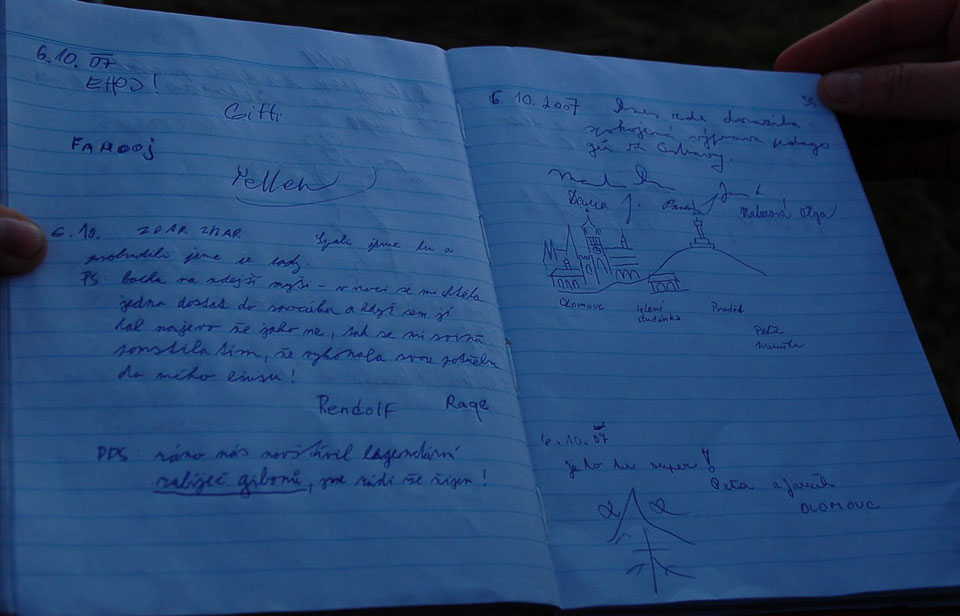 6.10. 07
EHOJ!
Gitti
FAHOOJ
Yelleh
6.10. ZDAR ZMAR Spali jsme tu a
probudili jsme se tady.
PS: bacha na zdejší myši - v noci se mi chtěla
jedna dostat do spacáku a když sem jí
dal najevo že jako ne, tak se mi
pomstila tím, že vykonala svou potřebu
do mého ešusu!
Rendolf Rage
PPS: ráno nás navštívil legendární
zabíječ gibonů, jsme rádi že žijem!
6. 10. 2007 Dnes zde
spokojená výprava pedago
gů z Ostravy.
Dana J.
Malurová Olga
Olomouc Jelení studánka Praděd
Peťa
6.10.07
je to tu super!
Peťa a
OLOMOUC